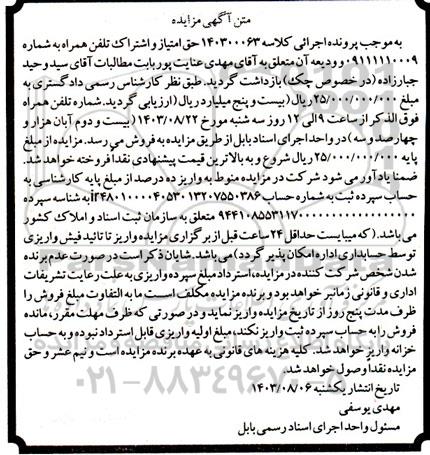 متن آگهی مزایده
به موجب پرونده اجرائی کلاسه ۱۴۰۳۰۰۰۶۳ حق امتیاز و اشتراک تلفن همراه به شماره
۰۹۱۱۱۱۱۰۰۰۹ و ودیعه آن متعلق به آقای مهدی عنایت پور بابت مطالبات آقای سید وحید
جبارزاده (در خصوص چک) بازداشت گردید. طبق نظر کارشناس رسمی دادگستری به
مبلغ ۲۵/۰۰۰/۰۰۰/۰۰۰ ریال (بیست و پنج میلیارد ریال) ارزیابی گردید. شماره تلفن همراه
فوق الذکر از ساعت ۹ الی ۱۲ روز سه شنبه مورخ ۱۴۰۳/۰۸/۲۲ (بیست و دوم آبان هزار و
چهارصد و سه) در واحد اجرای اسناد بابل از طریق مزایده به فروش می رسد. مزایده از مبلغ
پایه ۲۵/۰۰۰/۰۰۰/۰۰۰ ریال شروع و به بالاترین قیمت پیشنهادی نقدا فروخته خواهد شد.
ضمنا یادآور می شود شرکت در مزایده منوط به واریز ده درصد از مبلغ پایه کارشناسی به
حساب سپرده ثبت به شماره حساب ir۴۸۰۱۰۰۰۰۴۰۵۳۰۱۳۲۰۷۵۵۰۳۸۶ به شناسه سپرده
متعلق به سازمان ثبت اسناد و املاک کشور
می باشد. (که میبایست حداقل ۲۴ ساعت قبل از برگزاری مزایده واریز تا تائید فیش واریزی
توسط حسابداری اداره امکان پذیر گردد) می باشد. شایان ذکر است در صورت عدم برنده
شدن شخص شرکت کننده در مزایده، استرداد مبلغ سپرده واریزی به علت رعایت تشریفات
اداری و قانونی زمانبر خواهد بود و برنده مزایده مکلف است ما به التفاوت مبلغ فروش را
ظرف مدت پنج روز از تاریخ مزایده واریز نماید و در صورتی که ظرف مهلت مقرر، مانده
فروش را به حساب سپرده ثبت واریز نکند، مبلغ اولیه واریزی قابل استرداد نبوده و به حساب
خزانه واریز خواهد شد. کلیه هزینه های قانونی به عهده برنده مزایده است و نیم عشر و حق
مزایده نقدا وصول خواهد شد.
تاریخ انتشار یکشنبه ۱۴۰۳/۰۸/۰۶
مهدی یوسفی
مسئول واحد اجرای اسناد رسمی بابل